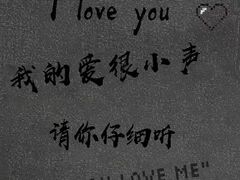 I love you
我的爱很小声
请你仔细听
LOVE ME"